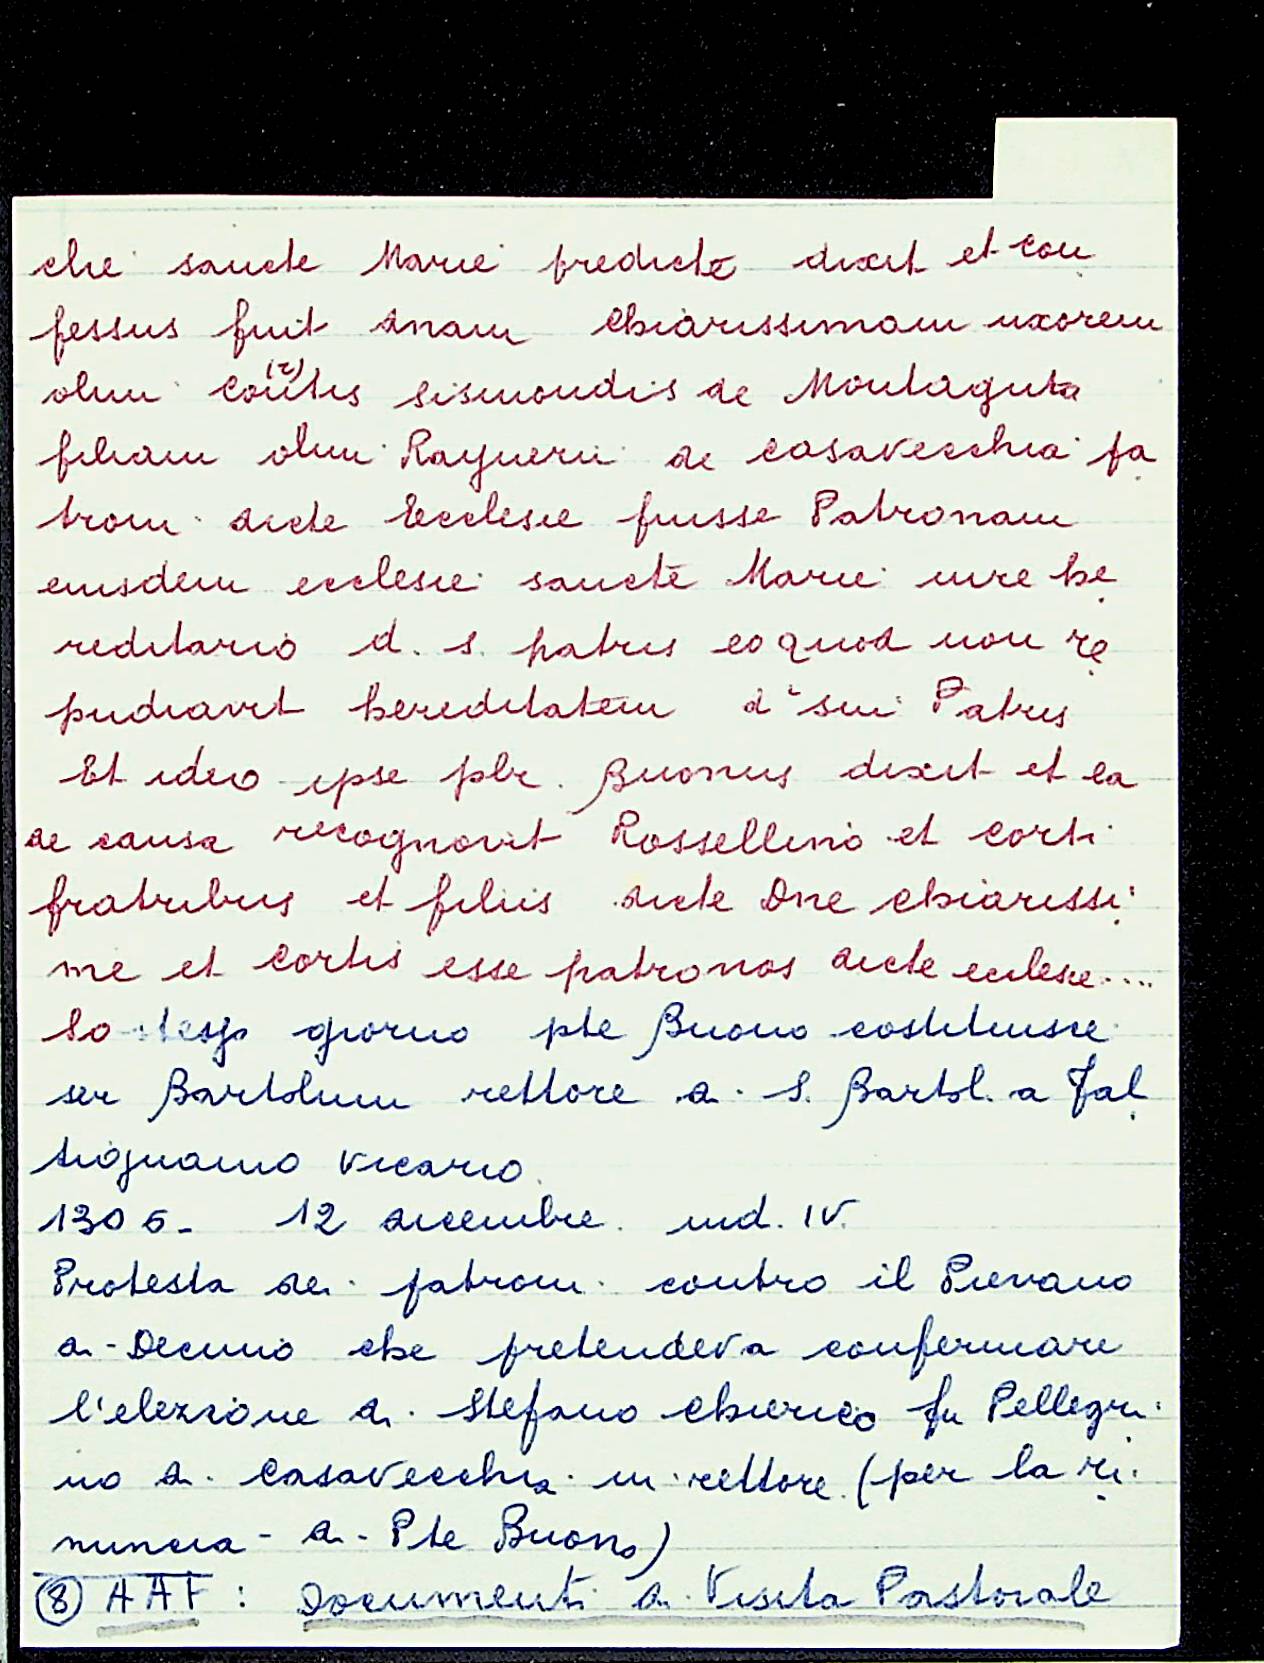 che sancte Marie predicte dixit et con
fessus fuit dnam Chiarissimam uxorem
olim Contis (?) Sismondis de Montaguta
filiam olim Raynerii de Casavecchia pa
troni dicte Ecclesie fuisse Patronam
eiusdem ecclesie sancte Marie iure he
reditario d. s. patris eo quod non re
pudiavit hereditatem d. sui Patris
Et ideo ipse pbr. Buonus dixit et ea
de causa recognovit Rossellino et Corti
fratribus et filiis dicte Dne Chiarissi
me et Cortis esse patronos dicte eclesie....
Lo stesso giorno pte Buono costituisce
ser Bartolum rettore di S. Bartol. a Fal
tignano vicario.
1305 - 12 dicembre ind. IV.
Protesta dei patroni contro il Pievano
di Decimo che pretendeva confermare
l'elezione di Stefano chierico fu Pellegri
no di Casavecchia in rettore (per la ri
nuncia di Pte Buono)
(8) AAF : Documenti di Visita Pastorale